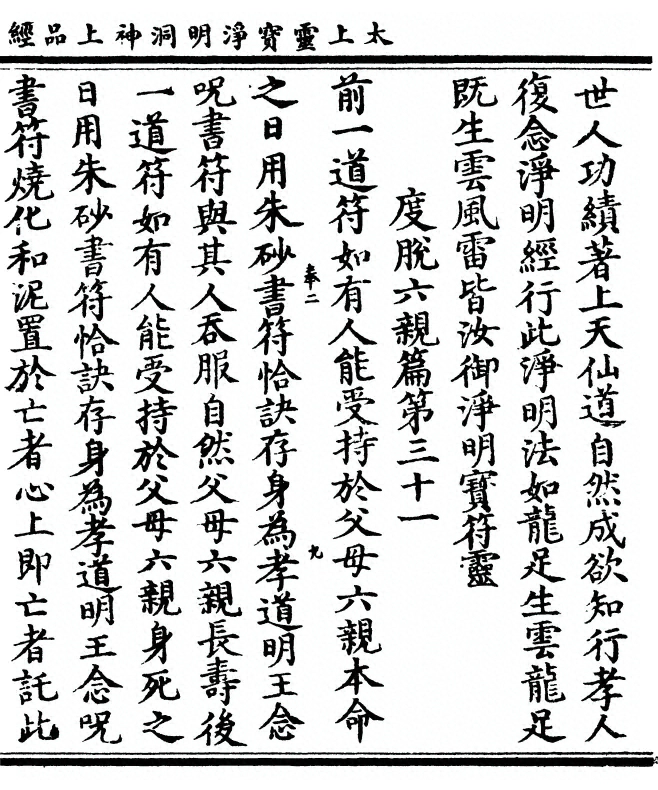 太上靈寶淨明洞神上品經
世人功績著上天仙道自然成欲知行孝人
復念淨明經行此淨明法如龍足生雲龍足
既生雲風雷皆汝御淨明寶符靈
度脫六親篇第三十一
前一道符如有人能受持於父母六親本命
奉二
九
之日用朱砂書符恰訣存身為孝道明王念
呪書符與其人吞服自然父母六親長壽後
一道符如有人能受持於父母六親身死之
日用朱砂書符恰訣存身為孝道明王念呪
書符燒化和泥置於亡者心上即亡者託此